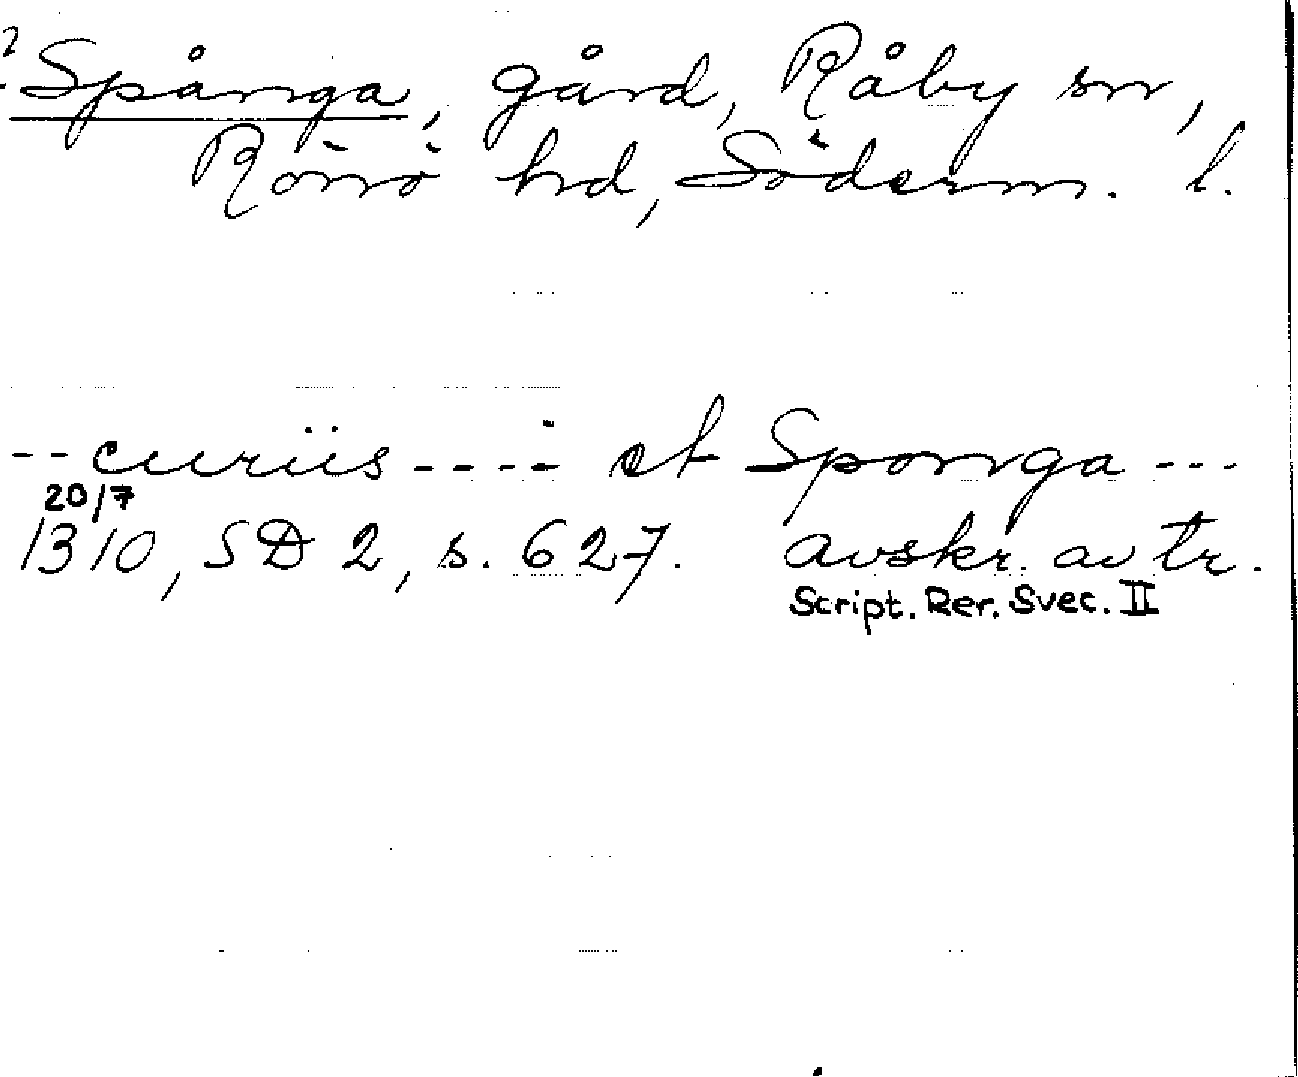 ? Spånga, gård, Råby sn,
Rönö hd, Söderm. l.
-- curiis ---- et Sponga ---
20/7
1310, SD 2, s. 627. avskr. av tr.
Script. Rer. Svec. II